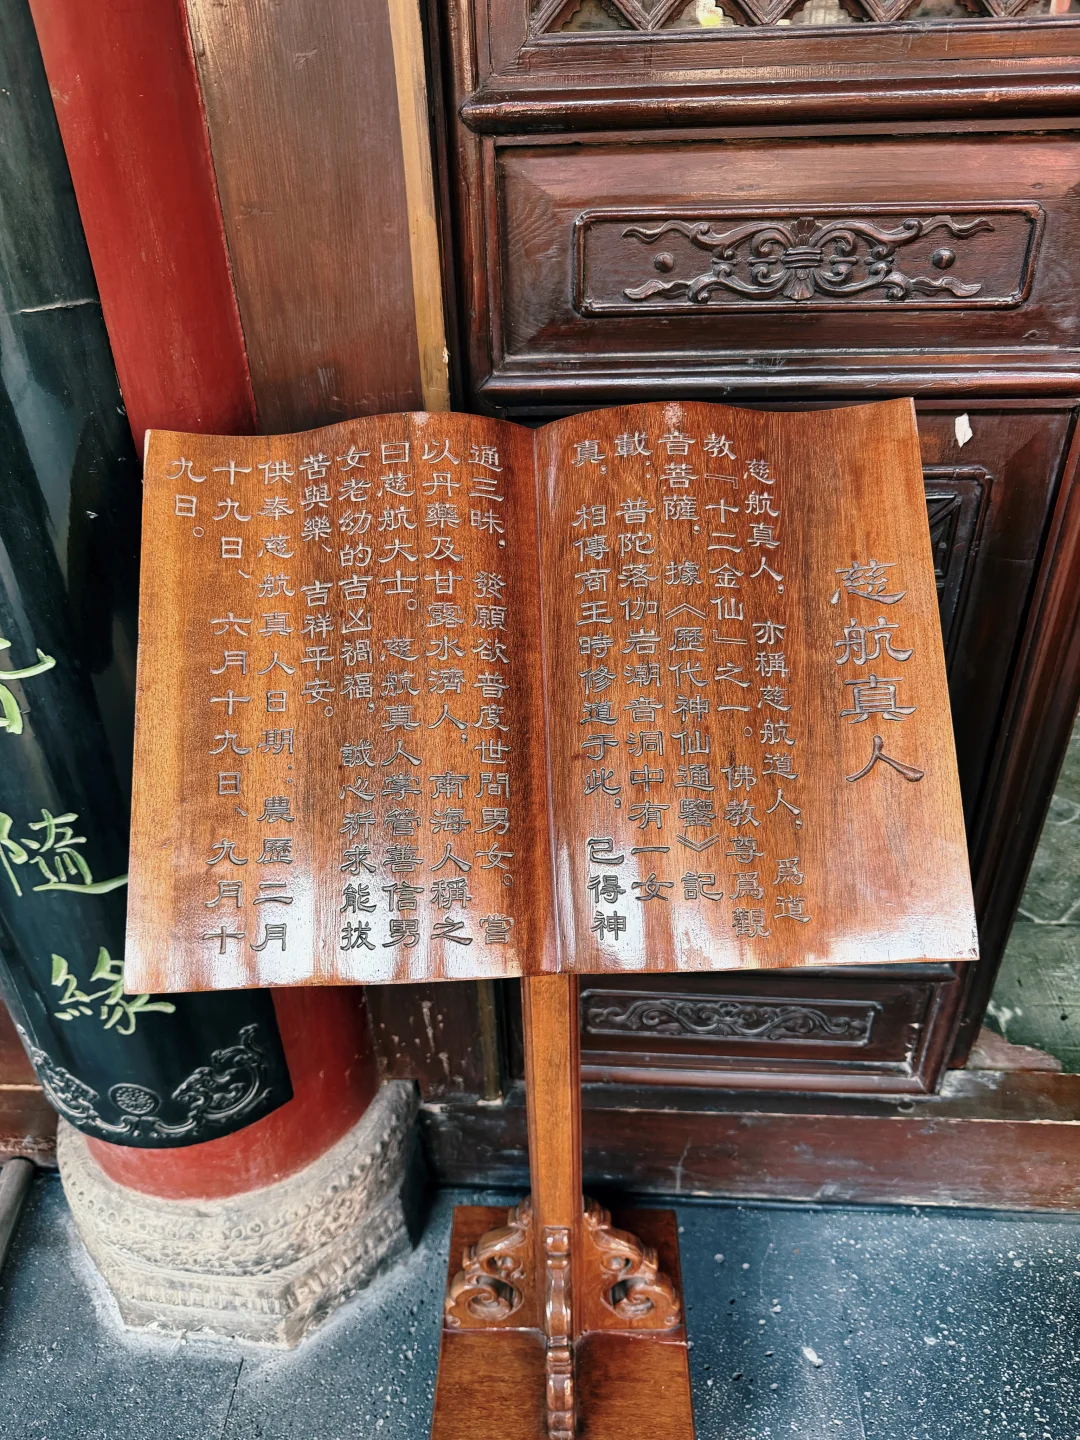 慈航真人
慈航真人，亦稱慈航道人，爲道
教『十二金仙』之一。佛教尊爲觀
音菩薩，據《歷代神仙通鑒》記
載：普陀落伽岩潮音洞中有一女
真，相傳商王時修道于此，已得神
通三昧，發願欲普度世間男女。嘗
以丹藥及甘露水濟人，南海人稱之
曰慈航大士。慈航真人掌管善信男
女老幼的吉凶禍福，誠心祈求能拔
苦與樂、吉祥平安。
供奉慈航真人日期：農歷二月
十九日、六月十九日、九月十
九日。
隨
緣